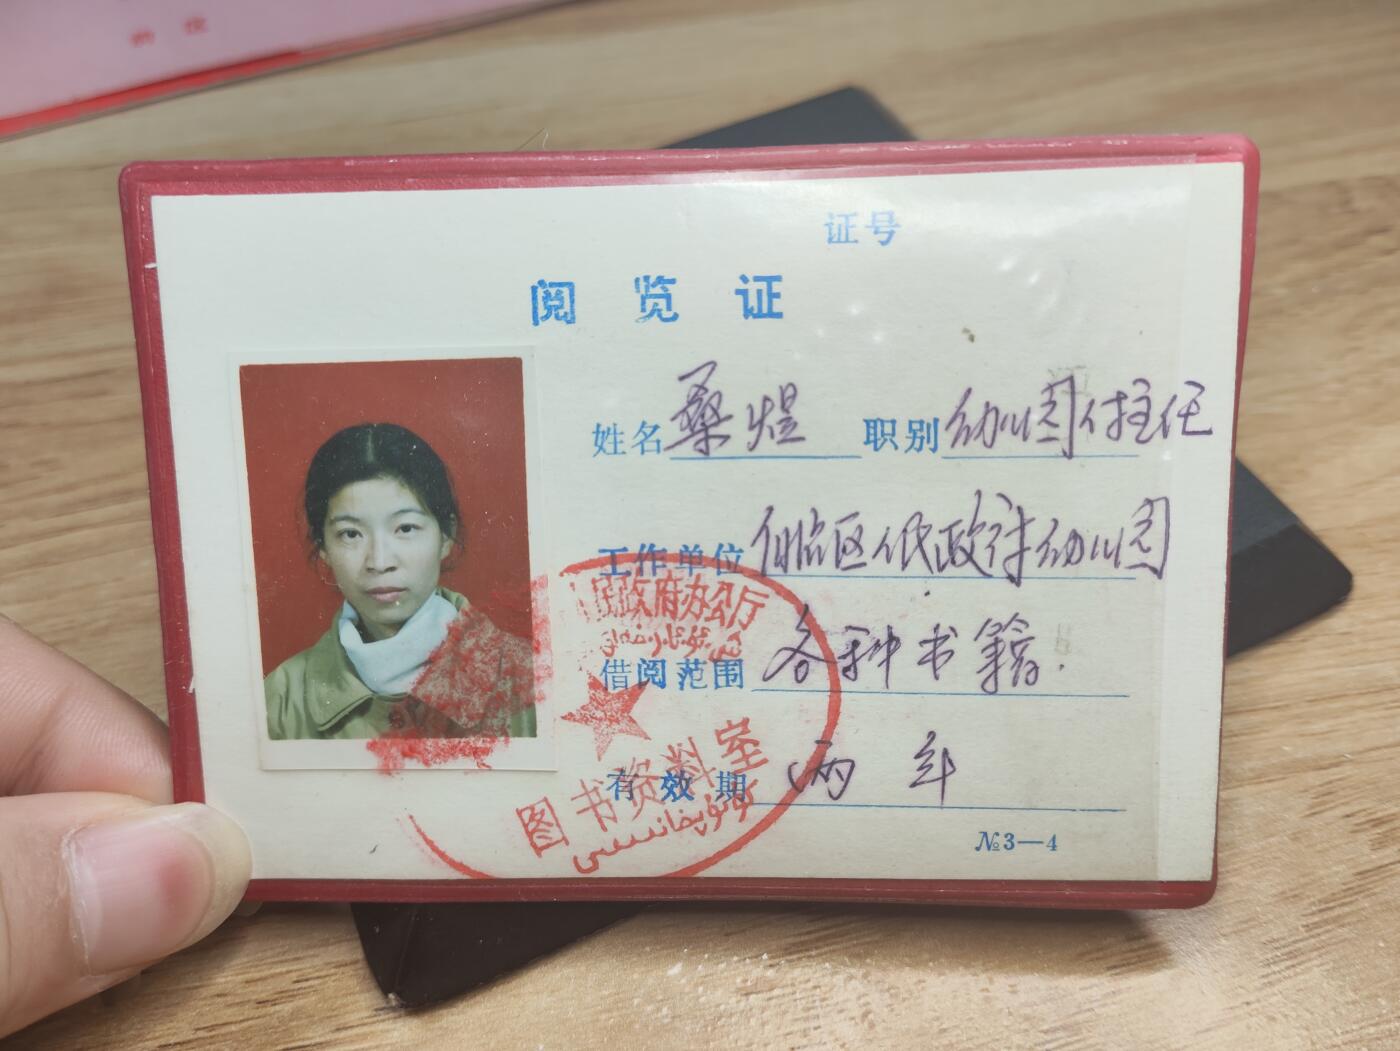 证号
阅览证
姓名 桑煜 职别 幼儿园付主任
工作单位 自治区人民政府幼儿园
民政府办公厅
借阅范围 各种书籍.
图书资料室
有效期 两年
№3—4